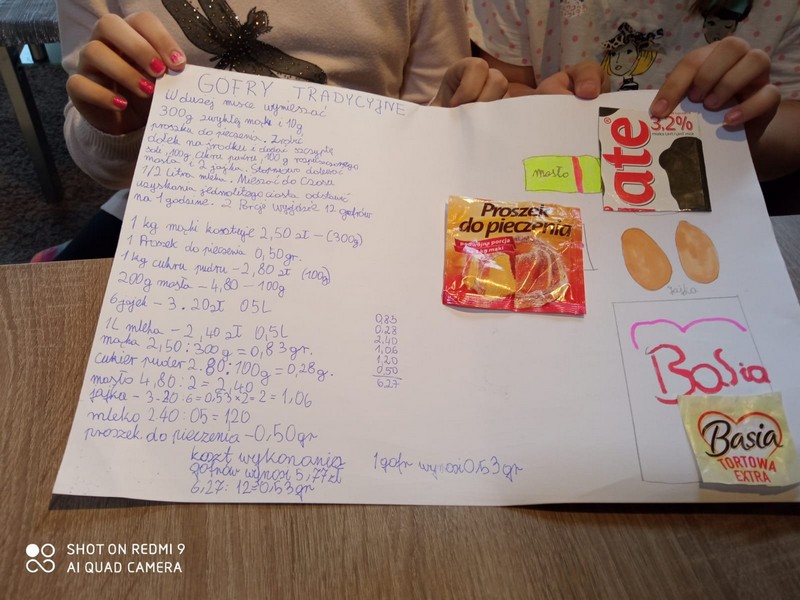 GOFRY TRADYCYJNE
W dużej misce wymieszać
300g zwykłej mąki i 10g
proszku do pieczenia. Zrobić
dołek na środku i dodać szczyptę
soli, 100g cukru pudru, 100g roztopionego
masła i 2 jajka. Stopniowo dolewać
1/2 litra mleka. Mieszać do czasu
uzyskania jednolitego ciasta odstawić
na 1 godzinę. Z Porcji wyjdzie 12 gofrów
1 kg mąki kosztuje 2,50 zł - (300g)
1 Proszek do pieczenia 0,50gr.
1 kg cukru pudru - 2,80 zł (100g)
200g masła - 4,80 - 100g
6 jajek - 3.20zł 05L
1L mleka - 2,40 zł 0,5L
mąka 2,50:300g = 0,83gr.
cukier puder 2.80:100g = 0,28g.
masło 4,80:2 = 2,40
jajka - 3-20:6=0,53×2=2=1,06
mleko 240:05=120
proszek do pieczenia - 0,50gr
koszt wykonania
gofrów wynosi 5,77zł
6,27:12=0,53gr
0,85
0.28
2.40
1,06
1,20
0,50
6,27
1 gofr wynosi 0,53gr
masło
Proszek
do pieczenia
3,2%
łate
jajka
Basia
Basia
TORTOWA
EXTRA
SHOT ON REDMI 9
AI QUAD CAMERA